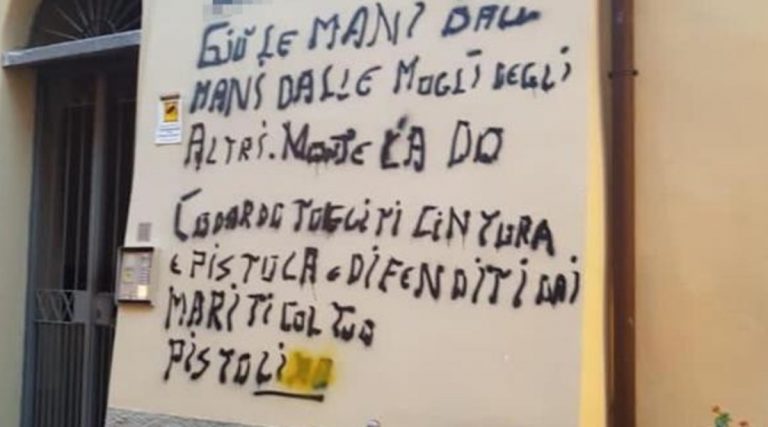 GIÙ LE MANI DALL
MANI DALLE MOGLI DEGLI
ALTRI. MORTE LA DO
CODARDO TOGLITI CINTURA
E PISTOLA E DIFENDITI DAI
MARITI COL TUO
PISTOLINO